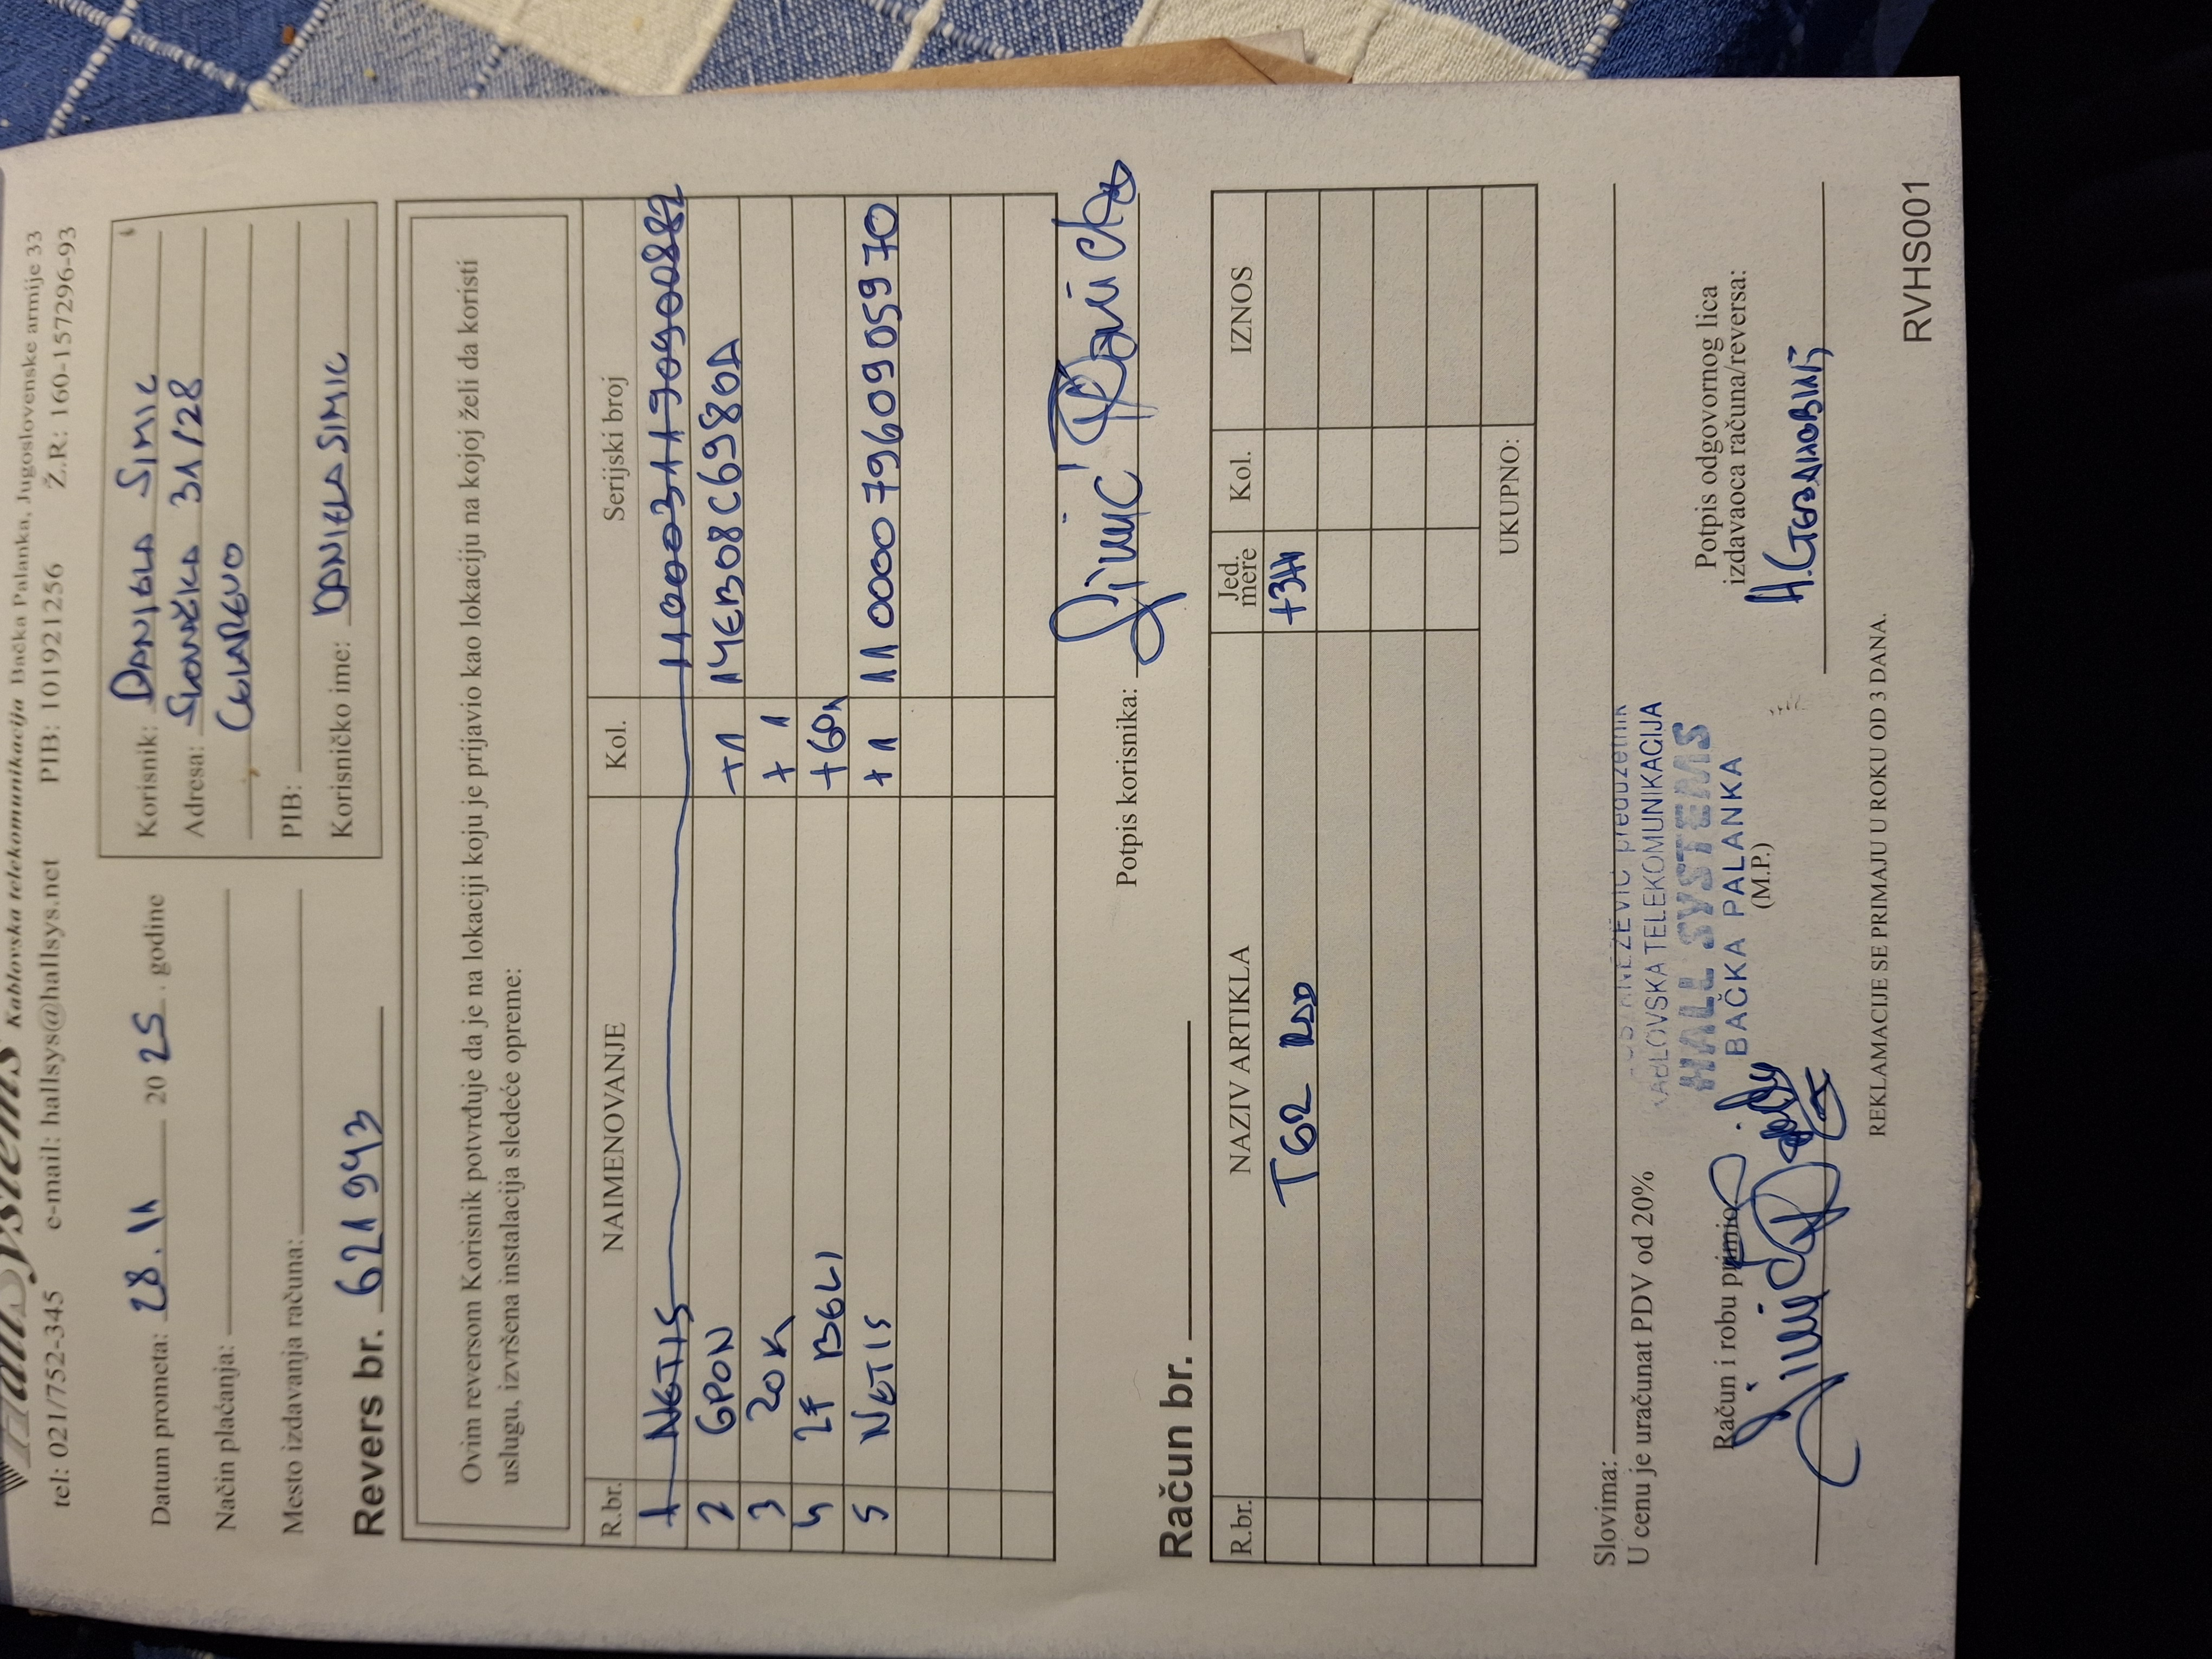 Hall Systems Kablovska telekomunikacija Bačka Palanka, Jugoslovenske armije 33
tel: 021/752-345 e-mail: hallsys@hallsys.net PIB: 101921256 Ž.R: 160-157296-93
Datum prometa: 28.11 2025. godine
Način plaćanja:
Mesto izdavanja računa:
Revers br. 621943
Korisnik: DANIELA SIMIC
Adresa: SLOVAČKA 31/28
ČELAREVO
PIB:
Korisničko ime: DANIELA SIMIC
Ovim reversom Korisnik potvrđuje da je na lokaciji koju je prijavio kao lokaciju na kojoj želi da koristi
uslugu, izvršena instalacija sledeće opreme:
R.br. NAIMENOVANJE Kol. Serijski broj
1 NETIS
2 GPON +1 14EB08C6980A
3 ZOK +1
4 2F +60m
5 NETIS +1 1100007960905970
Potpis korisnika: Simić Daniela
Račun br.
R.br. NAZIV ARTIKLA Jed. mere Kol. IZNOS
T62 +3H
UKUPNO:
Slovima:
U cenu je uračunat PDV od 20%
KABLOVSKA TELEKOMUNIKACIJA
HALL SYSTEMS
BAČKA PALANKA
(M.P.)
Račun i robu primio
Potpis odgovornog lica
izdavaoca računa/reversa:
REKLAMACIJE SE PRIMAJU U ROKU OD 3 DANA.
RVHS001